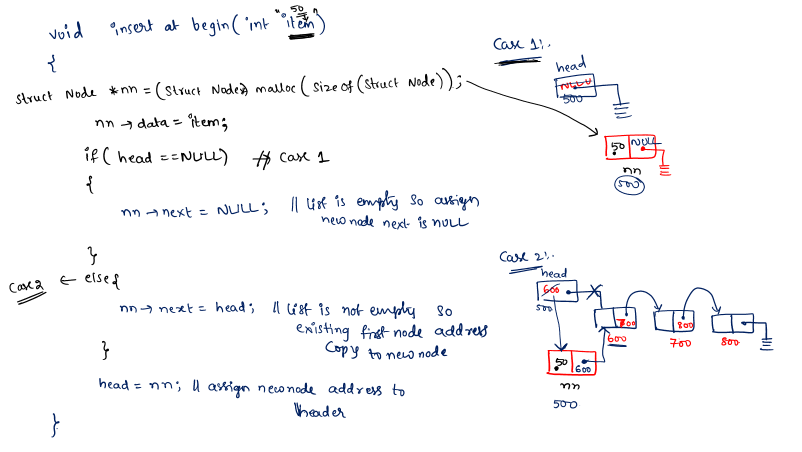 50
void insert at begin( int "item")
{
struct Node *nn = (struct Node*) malloc( sizeof(struct Node));
nn → data = item;
if( head ==NULL) // case 1
{
nn → next = NULL; // list is empty so assign
newnode next is NULL
}
case 2 ← else{
nn → next = head; // list is not empty so
existing first node address
copy to newnode
}
head = nn; // assign newnode address to
header
}
Case 1:.
head
NULL
500
50 NULL
nn
500
Case 2:.
head
600
500
700 800
600 700 800
50 600
nn
500